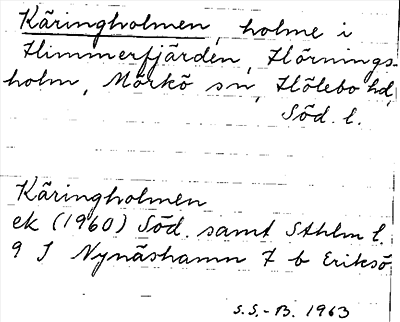 Käringholmen, holme i
Himmerfjärden, Hörnings-
holm, Mörkö sn, Hölebo hd,
Söd. l.
Käringholmen
ek (1960) Söd. samt Sthlm l.
9 I Nynäshamn 7 b Eriksö
S.S.-B. 1963